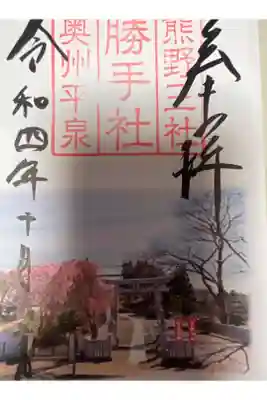 奉拝
熊野三社
勝手社
奥州平泉
令和四年十月